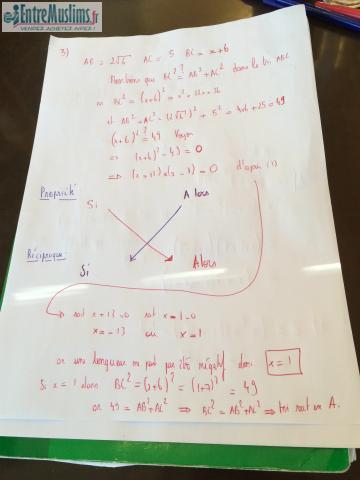 EntreMuslims.fr
VENDEZ ACHETEZ APREZ !
3) AB = 2√6 AC = 5 BC = x+6
que BC² ?= AB² + AC² dans le tri ABC
BC² = (x+6)² = x² + 12x + 36
et AB² + AC² = (2√6)² + 5² = 4×6 + 25 = 49
(x+6)² ?= 49
⇒ (x+6)² - 49 = 0
⇒ (x+13)(x-1) = 0 d'après (1)
Propriété
Si Alors
Réciproque
Si Alors
soit x+13=0 soit x-1=0
x = -13 ou x = 1
or une longueur ne peut pas être négatif donc x = 1
Si x = 1 donc BC² = (x+6)² = (1+6)² = 49
or 49 = AB² + AC² ⇒ BC² = AB² + AC² ⇒ tri rect en A.